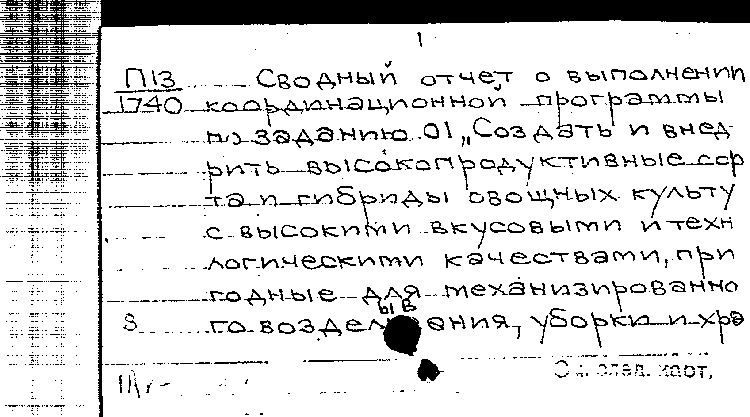 1
П13 Сводный отчет о выполнении
1740 координационной программы
по заданию 01 „Создать и внед
рить высокопродуктивные сор
та и гибриды овощных культу
с высокими вкусовыми и техн
логическими качествами, при
годные для механизированно
ыв
8 го возделения, уборки и хра
См. след. карт.